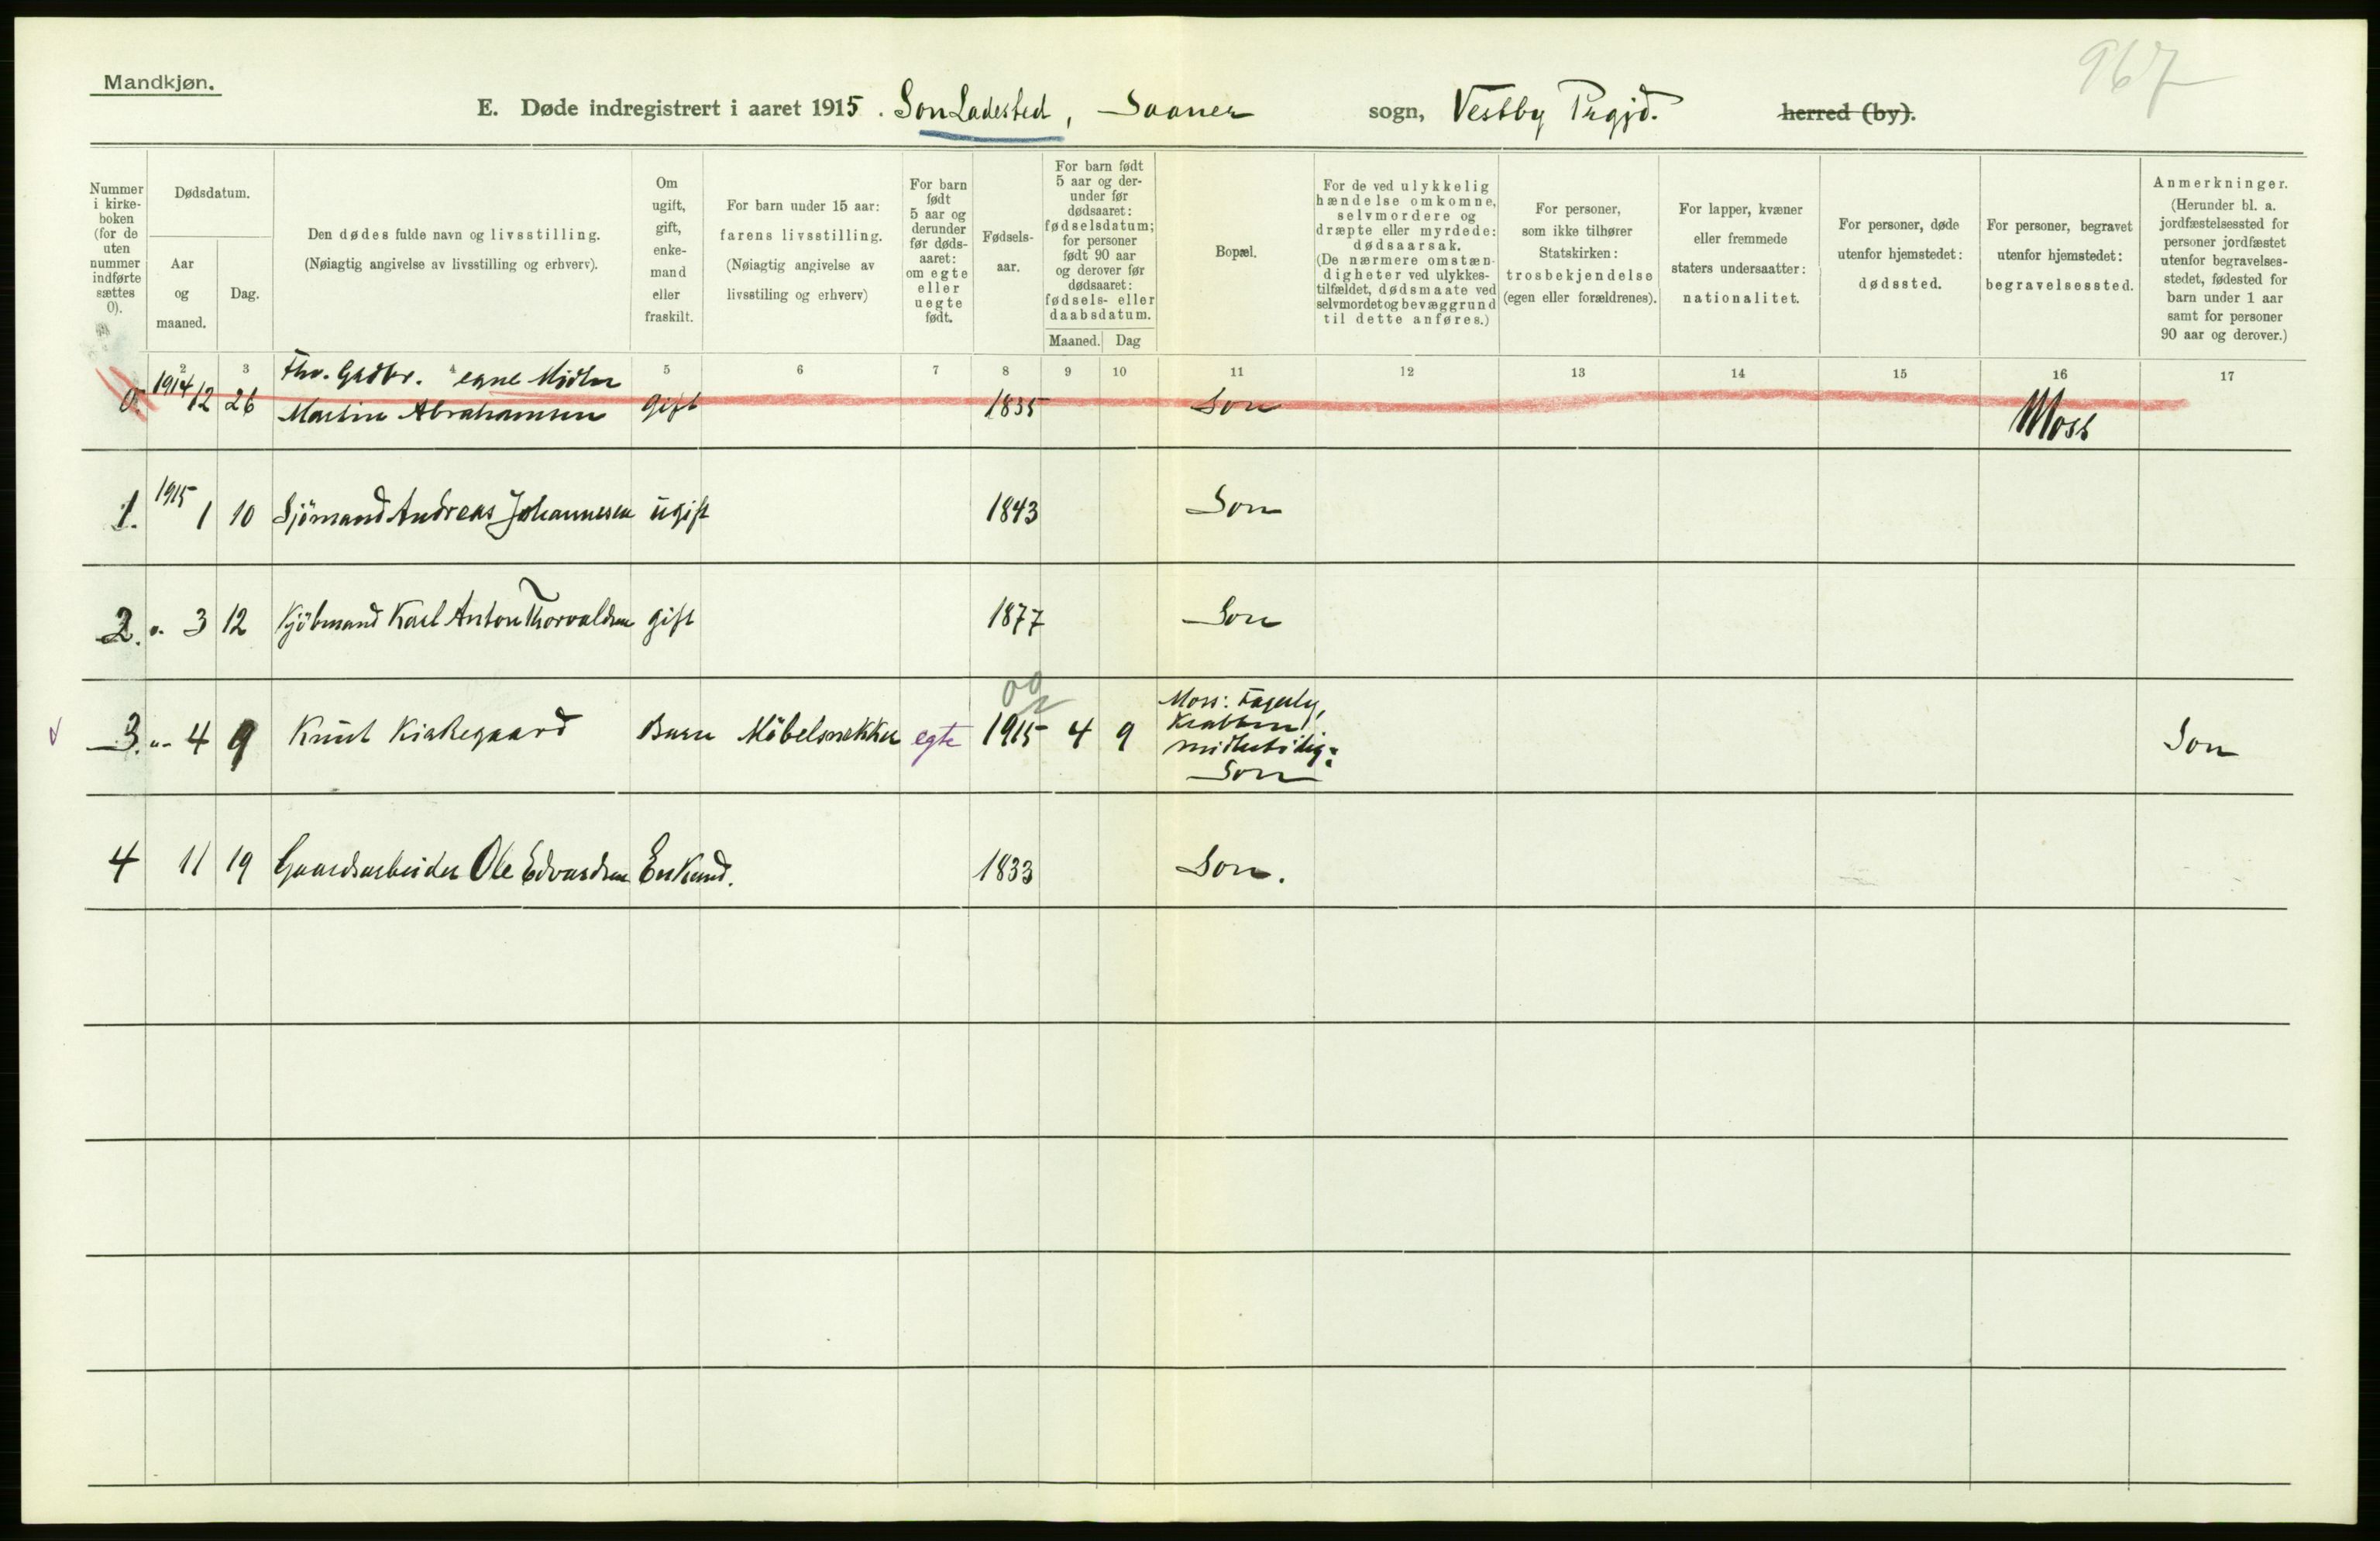 967
Mandkjøn.
E. Døde indregistrert i aaret 1915. Son Ladested, Saaner sogn, Vestby Prgjd. herred (by).
Nummer i kirke-boken (for de uten nummer indførte sættes 0).
Dødsdatum.
Aar og maaned.
Dag.
Den dødes fulde navn og livsstilling.
(Nøiagtig angivelse av livsstilling og erhverv).
Om ugift, gift, enke-mand eller fraskilt.
For barn under 15 aar: farens livsstilling.
(Nøiagtig angivelse av livsstiling og erhverv)
For barn født 5 aar og derunder før døds-aaret: om egte eller uegte født.
Fødsels-aar.
For barn født 5 aar og der-under før dødsaaret: fødselsdatum; for personer født 90 aar og derover før dødsaaret: fødsels- eller daabsdatum.
Maaned. Dag
Bopæl.
For de ved ulykkelig hændelse omkomne, selvmordere og dræpte eller myrdede: dødsaarsak.
(De nærmere omstæn-digheter ved ulykkes-tilfældet, dødsmaate ved selvmordet og bevæggrund til dette anføres.)
For personer, som ikke tilhører Statskirken: trosbekjendelse (egen eller forældrenes).
For lapper, kvæner eller fremmede staters undersaatter: nationalitet.
For personer, døde utenfor hjemstedet: dødssted.
For personer, begravet utenfor hjemstedet: begravelsessted.
Anmerkninger.
(Herunder bl. a. jordfæstelsessted for personer jordfæstet utenfor begravelses-stedet, fødested for barn under 1 aar samt for personer 90 aar og derover.)
2 3 4 5 6 7 8 9 10 11 12 13 14 15 16 17
Fhv. Gadbr. egne Midler
0. 1914 12 26 Martin Abrahamsen gift 1835 Son Moss
1. 1915 1 10 Sjömand Andreas Johannesen ugift 1843 Son
2. " 3 12 Kjöbmand Karl Anton Thorvaldsen gift 1877 Son
og
3. " 4 9 Knut Kirkegaard Barn Möbelsnekker egte 1915 4 9 Moss: Fagerly, Krabben, midlertidig: Son Son
4 11 19 Gaardsarbeider Ole Edvardsen Enkemd. 1833 Son.